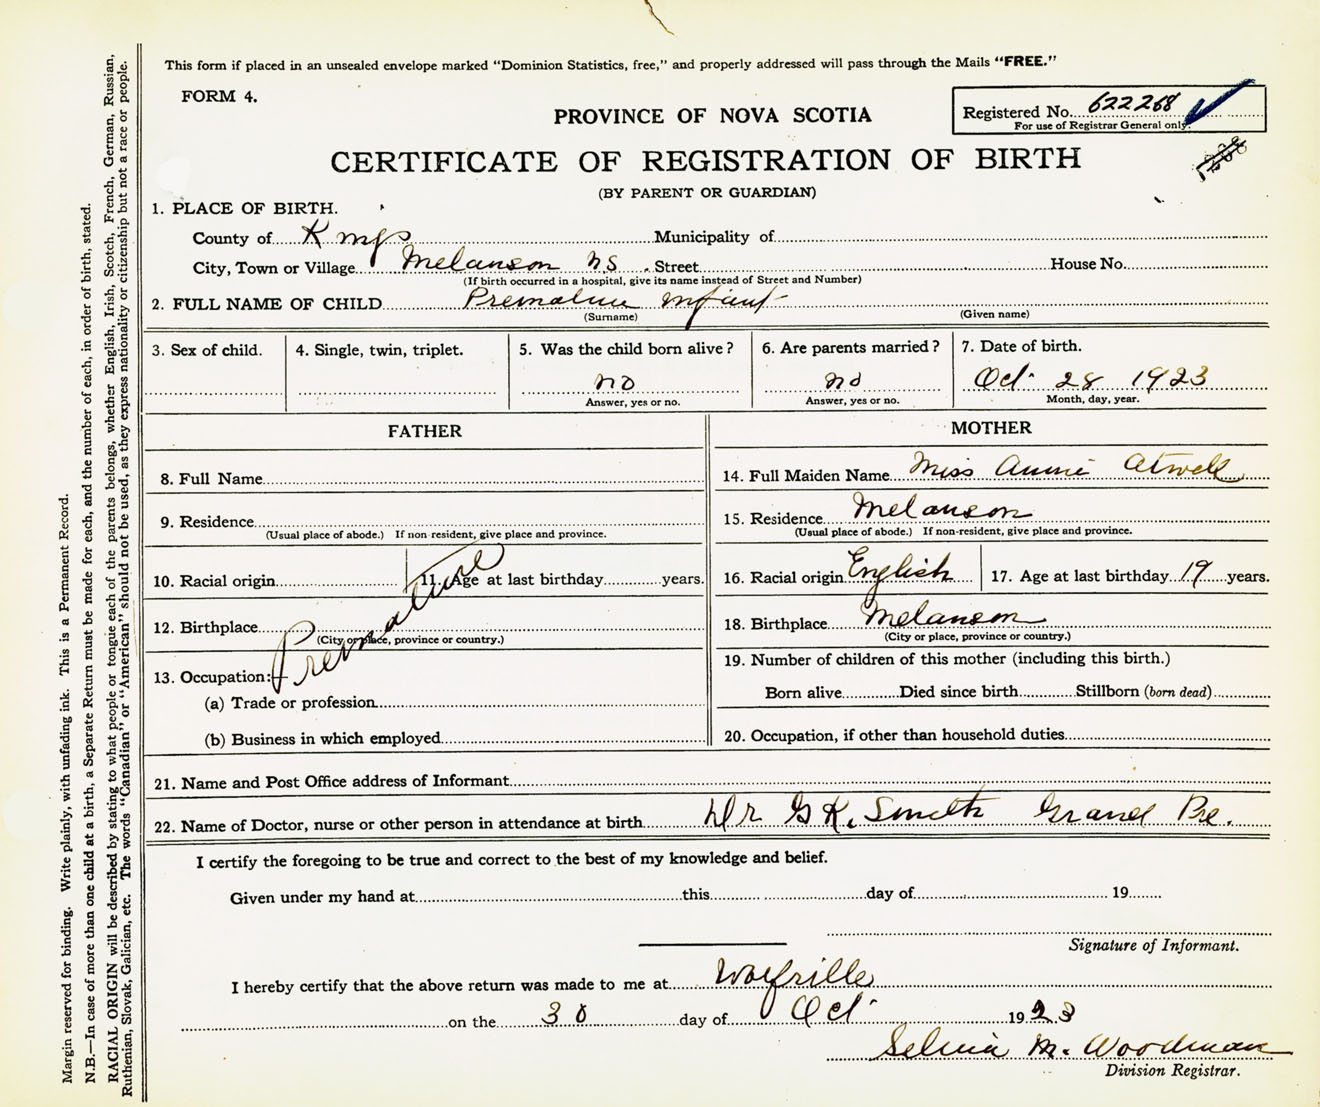 This form if placed in an unsealed envelope marked "Dominion Statistics, free," and properly addressed will pass through the Mails "FREE."
FORM 4.
PROVINCE OF NOVA SCOTIA
Registered No. 622268
For use of Registrar General only.
CERTIFICATE OF REGISTRATION OF BIRTH
(BY PARENT OR GUARDIAN)
1. PLACE OF BIRTH.
County of Kings Municipality of
City, Town or Village Melanson NS. Street House No.
(If birth occurred in a hospital, give its name instead of Street and Number)
2. FULL NAME OF CHILD Premature infant
(Surname) (Given name)
3. Sex of child. 4. Single, twin, triplet. 5. Was the child born alive? 6. Are parents married? 7. Date of birth.
no no Oct. 28 1923
Answer, yes or no. Answer, yes or no. Month, day, year.
FATHER
8. Full Name
9. Residence
(Usual place of abode.) If non-resident, give place and province.
10. Racial origin 11. Age at last birthday years.
12. Birthplace
(City or place, province or country.)
Premature
13. Occupation:
(a) Trade or profession
(b) Business in which employed
MOTHER
14. Full Maiden Name Miss Annie Atwell
15. Residence Melanson
(Usual place of abode.) If non-resident, give place and province.
16. Racial origin English 17. Age at last birthday 19 years.
18. Birthplace Melanson
(City or place, province or country.)
19. Number of children of this mother (including this birth.)
Born alive Died since birth Stillborn (born dead)
20. Occupation, if other than household duties
21. Name and Post Office address of Informant
22. Name of Doctor, nurse or other person in attendance at birth Dr G K. Smith Grand Pre.
I certify the foregoing to be true and correct to the best of my knowledge and belief.
Given under my hand at this day of 19
Signature of Informant.
I hereby certify that the above return was made to me at Wolfville
on the 30 day of Oct. 1923
Selma M. Woodman
Division Registrar.
Margin reserved for binding. Write plainly, with unfading ink. This is a Permanent Record.
N.B.—In case of more than one child at a birth, a Separate Return must be made for each, and the number of each, in order of birth, stated.
RACIAL ORIGIN will be described by stating to what people or tongue each of the parents belongs, whether English, Irish, Scotch, French, German, Russian,
Ruthenian, Slovak, Galician, etc. The words "Canadian" or "American" should not be used, as they express nationality or citizenship but not a race or people.